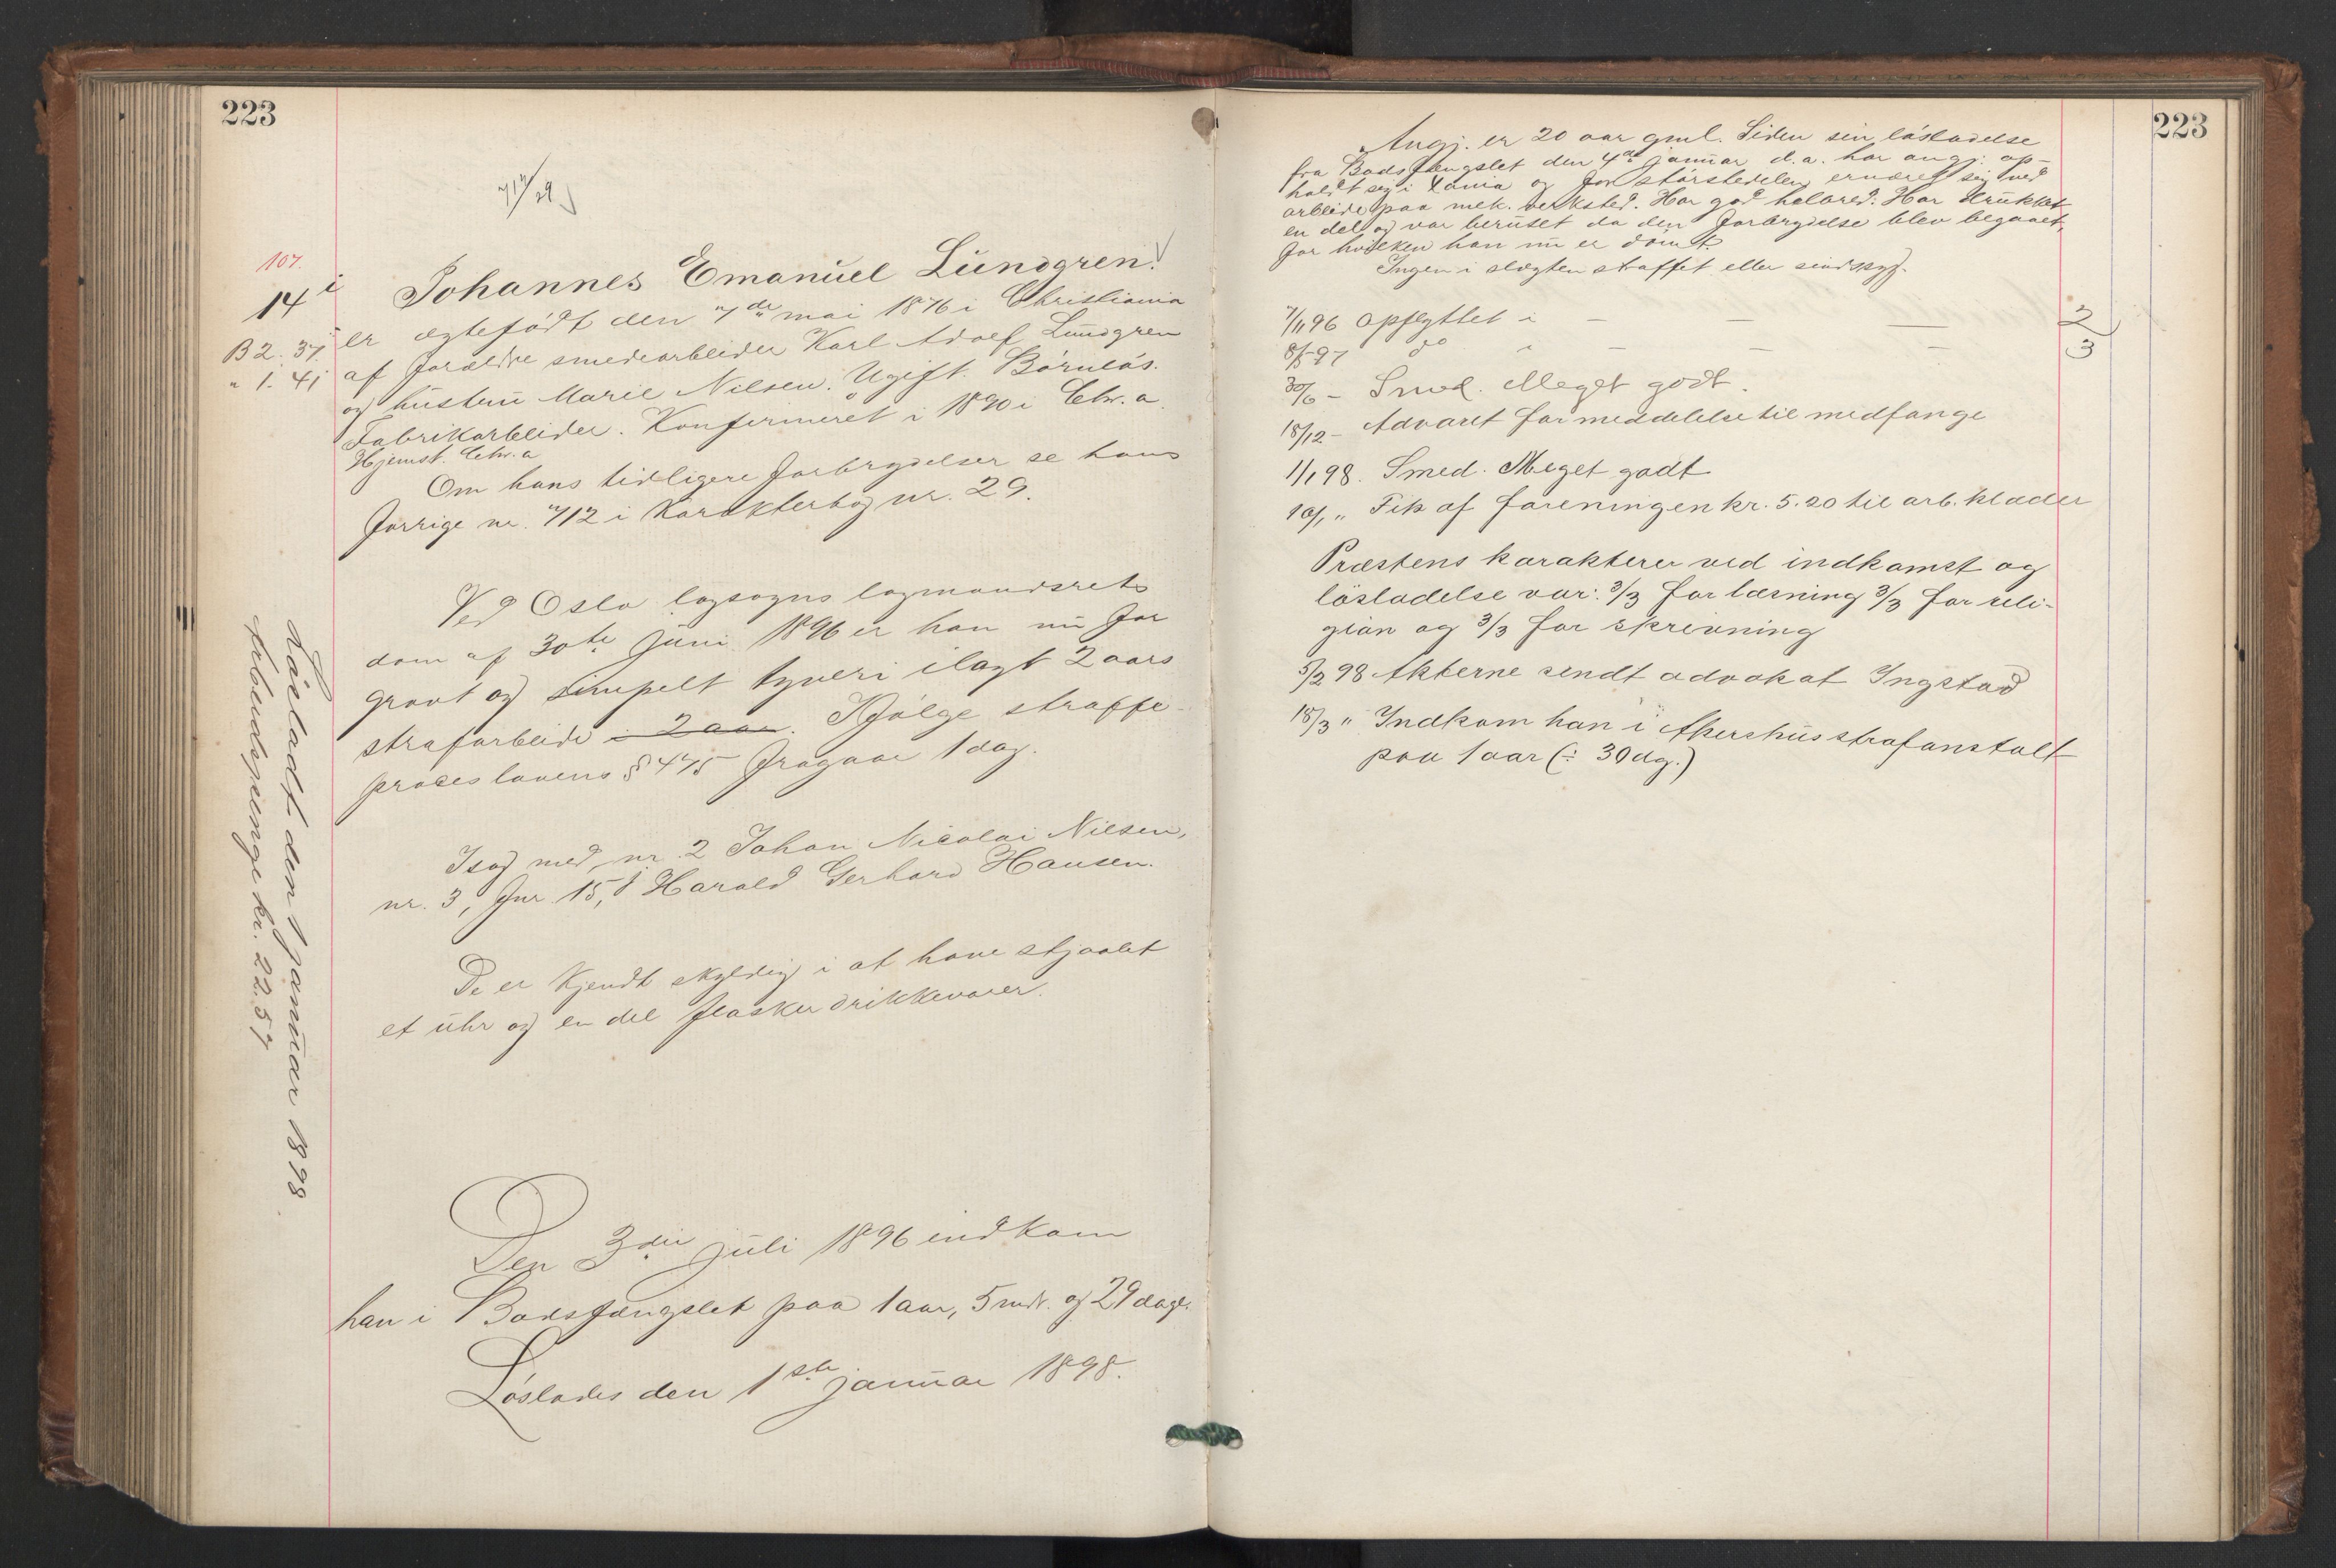 223
712/29
107.
14 i
B 2. 37.
" 1. 41
Johannes Emanuel Lundgren.
er ægtefødt den 7de mai 1876 i Christiania
af forældre smedearbeider Karl Adolf Lundgren
og hustru Marie Nilsen. Ugift. Børnløs.
Fabrikarbeider. Konfirmeret i 1890 i Chr.a.
Hjemst. Chr.a
Om hans tidligere forbrydelser se hans
forrige nr. 712 i Karakterbog nr. 29.
Ved Oslo lagsogns lagmandsrets
dom af 30te juni 1896 er han nu for
grovt og simpelt tyveri ilagt 2 aars
strafarbeide i 2 aar. Ifølge straffe-
proceslovens § 475 fragaar 1 dag.
Isag med nr. 2 Johan Nicolai Nilsen,
nr. 3, fnr. 15, Harald Gerhard Hansen.
De er kjendt skyldig i at have stjaalet
et uhr og en del flasker drikkevarer.
Den 3die juli 1896 indkom
han i Bodsfængslet paa 1 aar, 5 mdr. og 29 dage.
Løslades den 1ste januar 1898.
Løsladt den 1 januar 1898
Arbeidspenge kr. 22.57
223
Angj. er 20 aar gml. Siden sin løsladelse
fra Bodsfængslet den 4de januar d.a. har angj. op-
holdt sig i Xania og for størstedelen ernæret sig ved
arbeide paa mek. verksted. Har god helbred. Har drukket
en del og var beruset da den forbrydelse blev begaaet,
for hvilken han nu er dømt.
Ingen i slægten straffet eller sindssyg.
7/11 96 Opflyttet i — — — 2
8/5 97 do i — — — 3
30/6 - Smed. Meget godt.
18/12 - Advaret for meddelelse til medfange
1/1 98. Smed. Meget godt
10/1 " Fik af foreningen kr. 5.20 til arb. klæder
Præstens karakterer ved indkomst og
løsladelse var: 3/3 for læsning 3/3 for reli-
gion og 3/3 for skrivning
5/2 98 Akterne sendt advokat Ingstad
18/3 " Indkom han i Akershus strafanstalt
paa 1 aar (÷ 30 dg.)